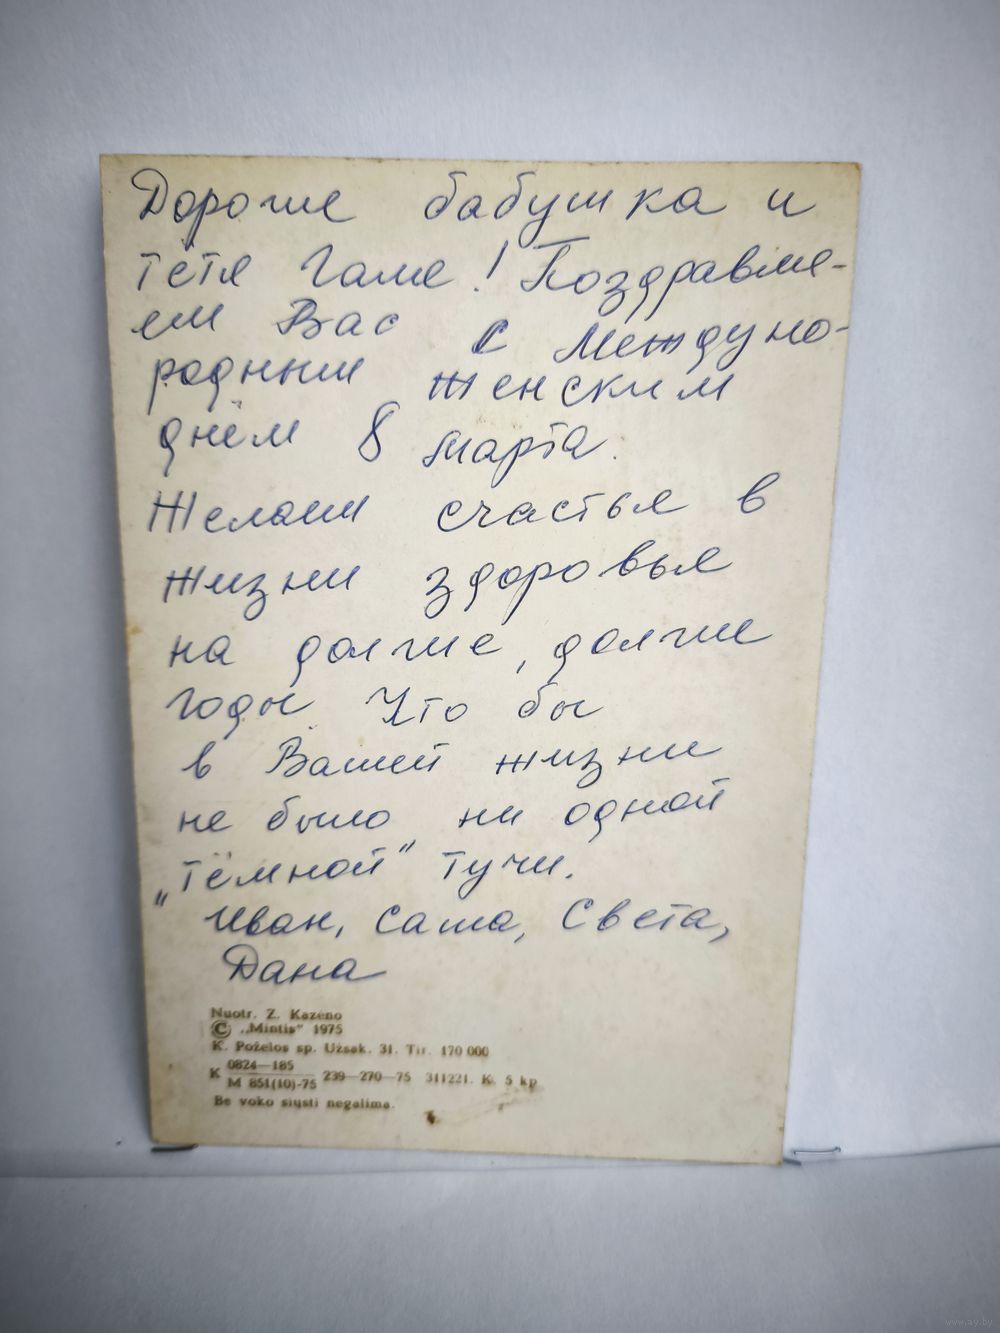 Дорогие бабушка и
тётя Галя! Поздравля-
ем Вас с Междуна-
родным женским
днём 8 марта.
Желаем счастья в
жизни здоровья
на долгие, долгие
годы Что бы
в Вашей жизни
не было ни одной
„тёмной" тучи.
Иван, Саша, Света,
Дана
Nuotr. Z. Kazėno
© „Mintis" 1975
K. Poželos sp. Užsak. 31. Tir. 170 000
K 0824—185
M 851(10)-75 239—270—75 311221. K. 5 kp
Be voko siųsti negalima.
www.ay.by